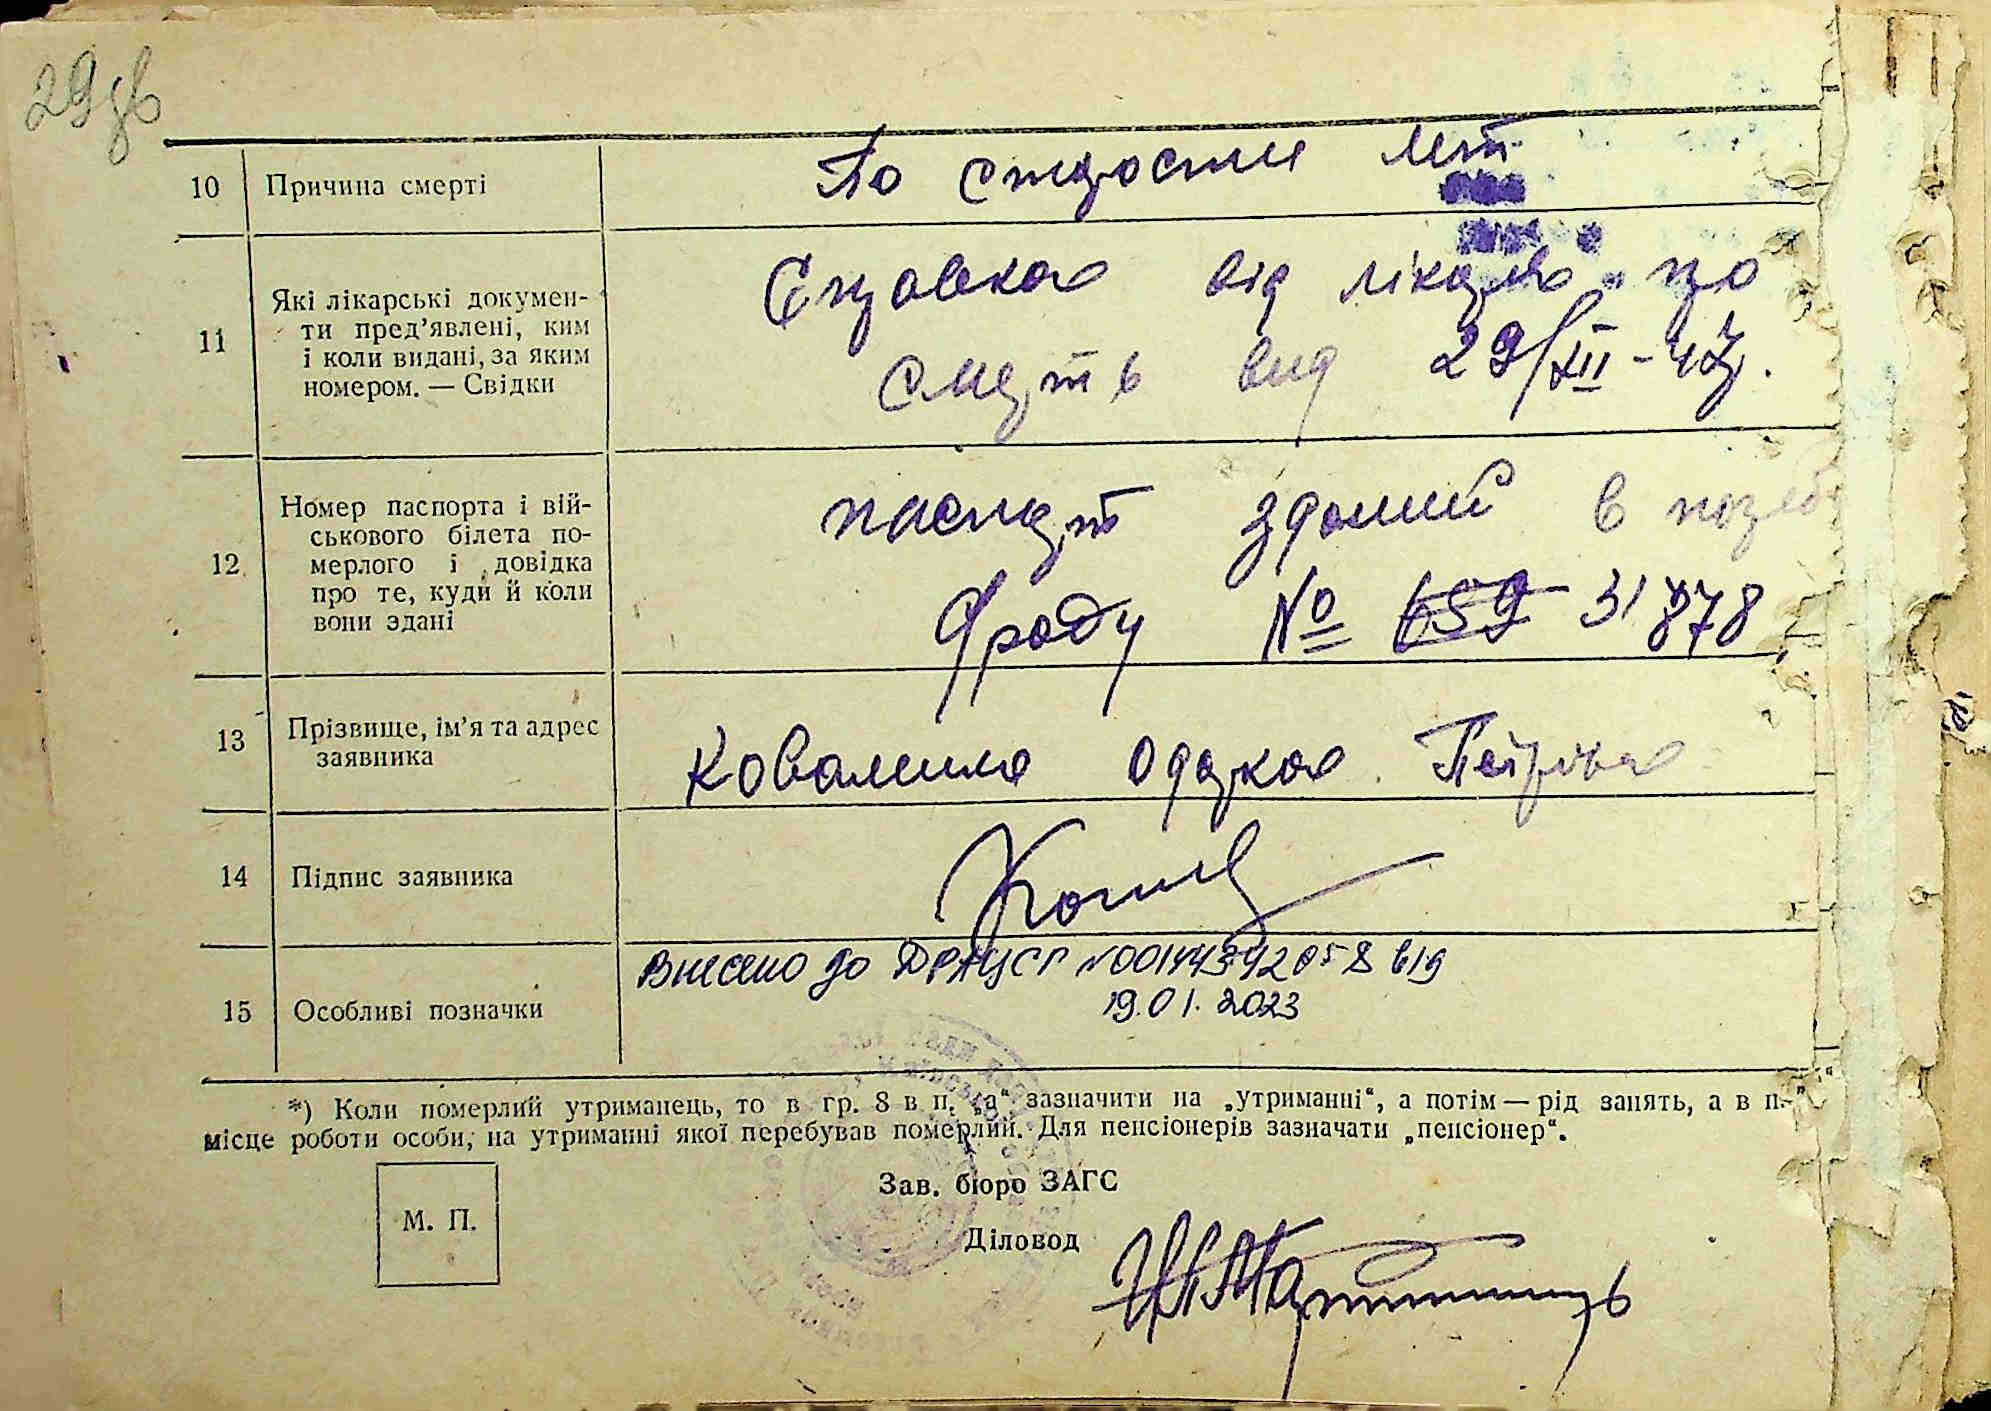 29зв
10 Причина смерті По старости лет
11 Які лікарські докумен-
ти пред’явлені, ким
і коли видані, за яким
номером. — Свідки
Справка від лікаря про
смерть вид 29/XII-47.
12 Номер паспорта і вій-
ськового білета по-
мерлого і довідка
про те, куди й коли
вони здані
паспорт зданий в
№ 659 31878
13 Прізвище, ім’я та адрес
заявника
Одарка Петрівна
14 Підпис заявника
15 Особливі позначки
Внесено до ДРАЦСГ від
19.01.2023
*) Коли померлий утриманець, то в гр. 8 в п. „а“ зазначити на „утриманні“, а потім — рід занять, а в п.
місце роботи особи, на утриманні якої перебував померлий. Для пенсіонерів зазначати „пенсіонер“.
М. П.
Зав. бюро ЗАГС
Діловод